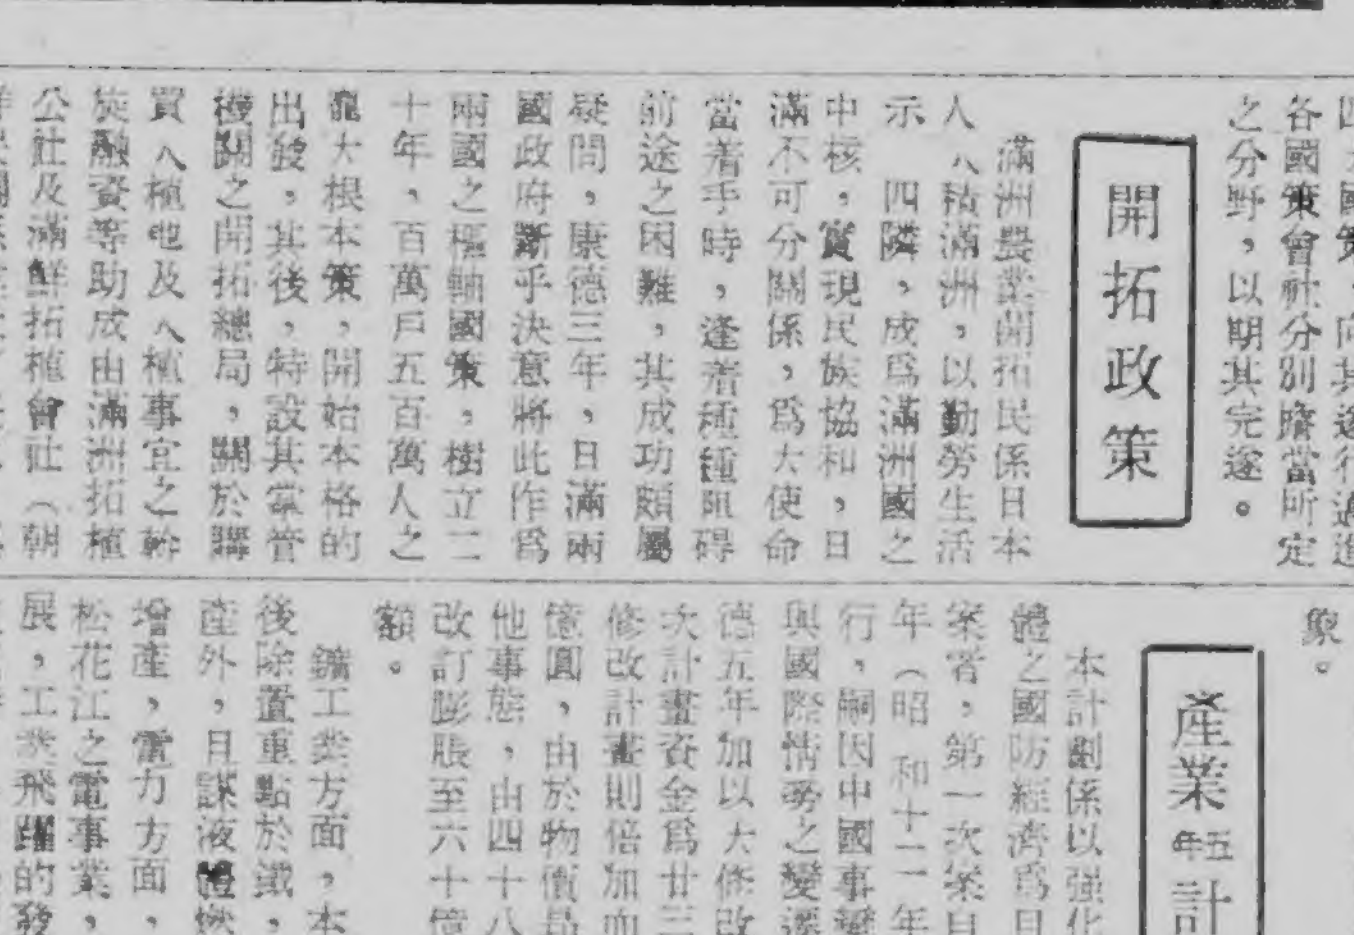 國策，向其遂行邁進
各國策會社分別擔當所定
之分野，以期其完遂。
開拓政策
滿洲農業開拓民係日本
人入植滿洲，以勤勞生活
示 四隣，成爲滿洲國之
中核，實現民族協和，日
滿不可分關係，爲大使命
當着手時，逢着種種阻碍
前途之困難，其成功頗屬
疑問，康德三年，日滿兩
國政府斷乎決意將此作爲
兩國之樞軸國策，樹立二
十年，百萬戶五百萬人之
龐大根本策，開始本格的
出發，其後，特設其掌管
機關之開拓總局，關於購
買入植地及入植事宜之斡
旋融資等助成由滿洲拓植
公社及滿鮮拓植會社（朝
象。
產業五年計
本計劃係以强化
體之國防經濟爲日
案者，第一次案自
年（昭和十二年
行，嗣因中國事變
與國際情勢之變遷
德五年加以大修改
次計畫資金爲廿三
修改計畫則倍加而
億圓，由於物價昂
他事態，由四十八
改訂膨脹至六十億
額。
鑛工業方面，本
後除置重點於鐵，
產外，且謀液體燃
增產，電力方面，
松花江之電事業，
展，工業飛躍的發